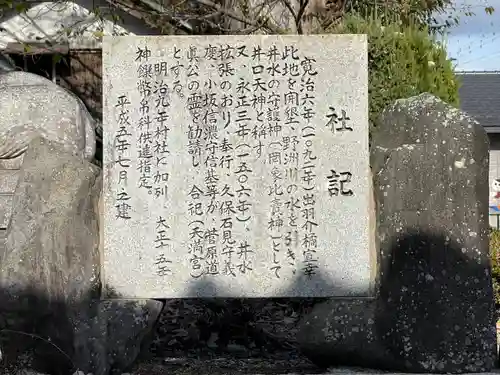 社記
寛治六年(一〇九二年)出羽介橘宣幸
此地を開墾、野洲川の水を引き、
井水の守護神(罔象比売神)として
井口天神と称す
又、永正三年(一五〇六年)、井水
拡張のおり、奉行、久保石見守義
度、小坂信濃守信基等が、菅原道
真公の霊を勧請し、合祀(天満宮)
とする。
明治九年村社に加列 大正十五年
神饌幣帛料供進指定。
平成五年七月 之建